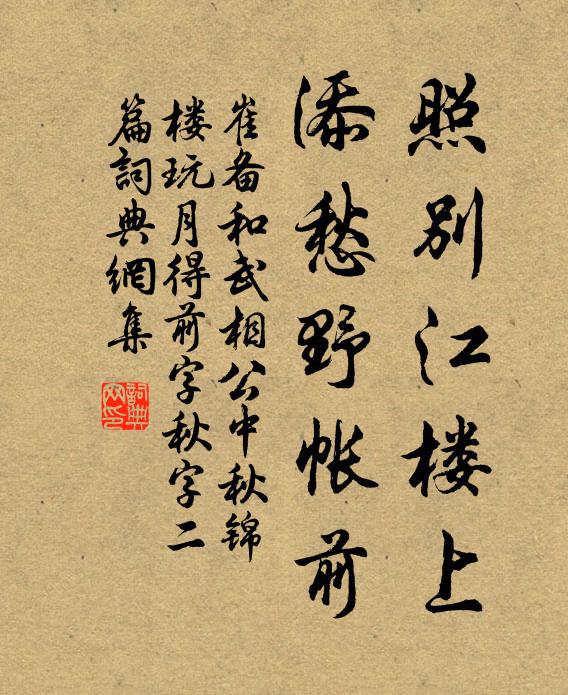 照别江楼上
添愁野帐前
崔备和武相公中秋锦
楼玩月得前字秋字二
篇詞典網集
詞典网印